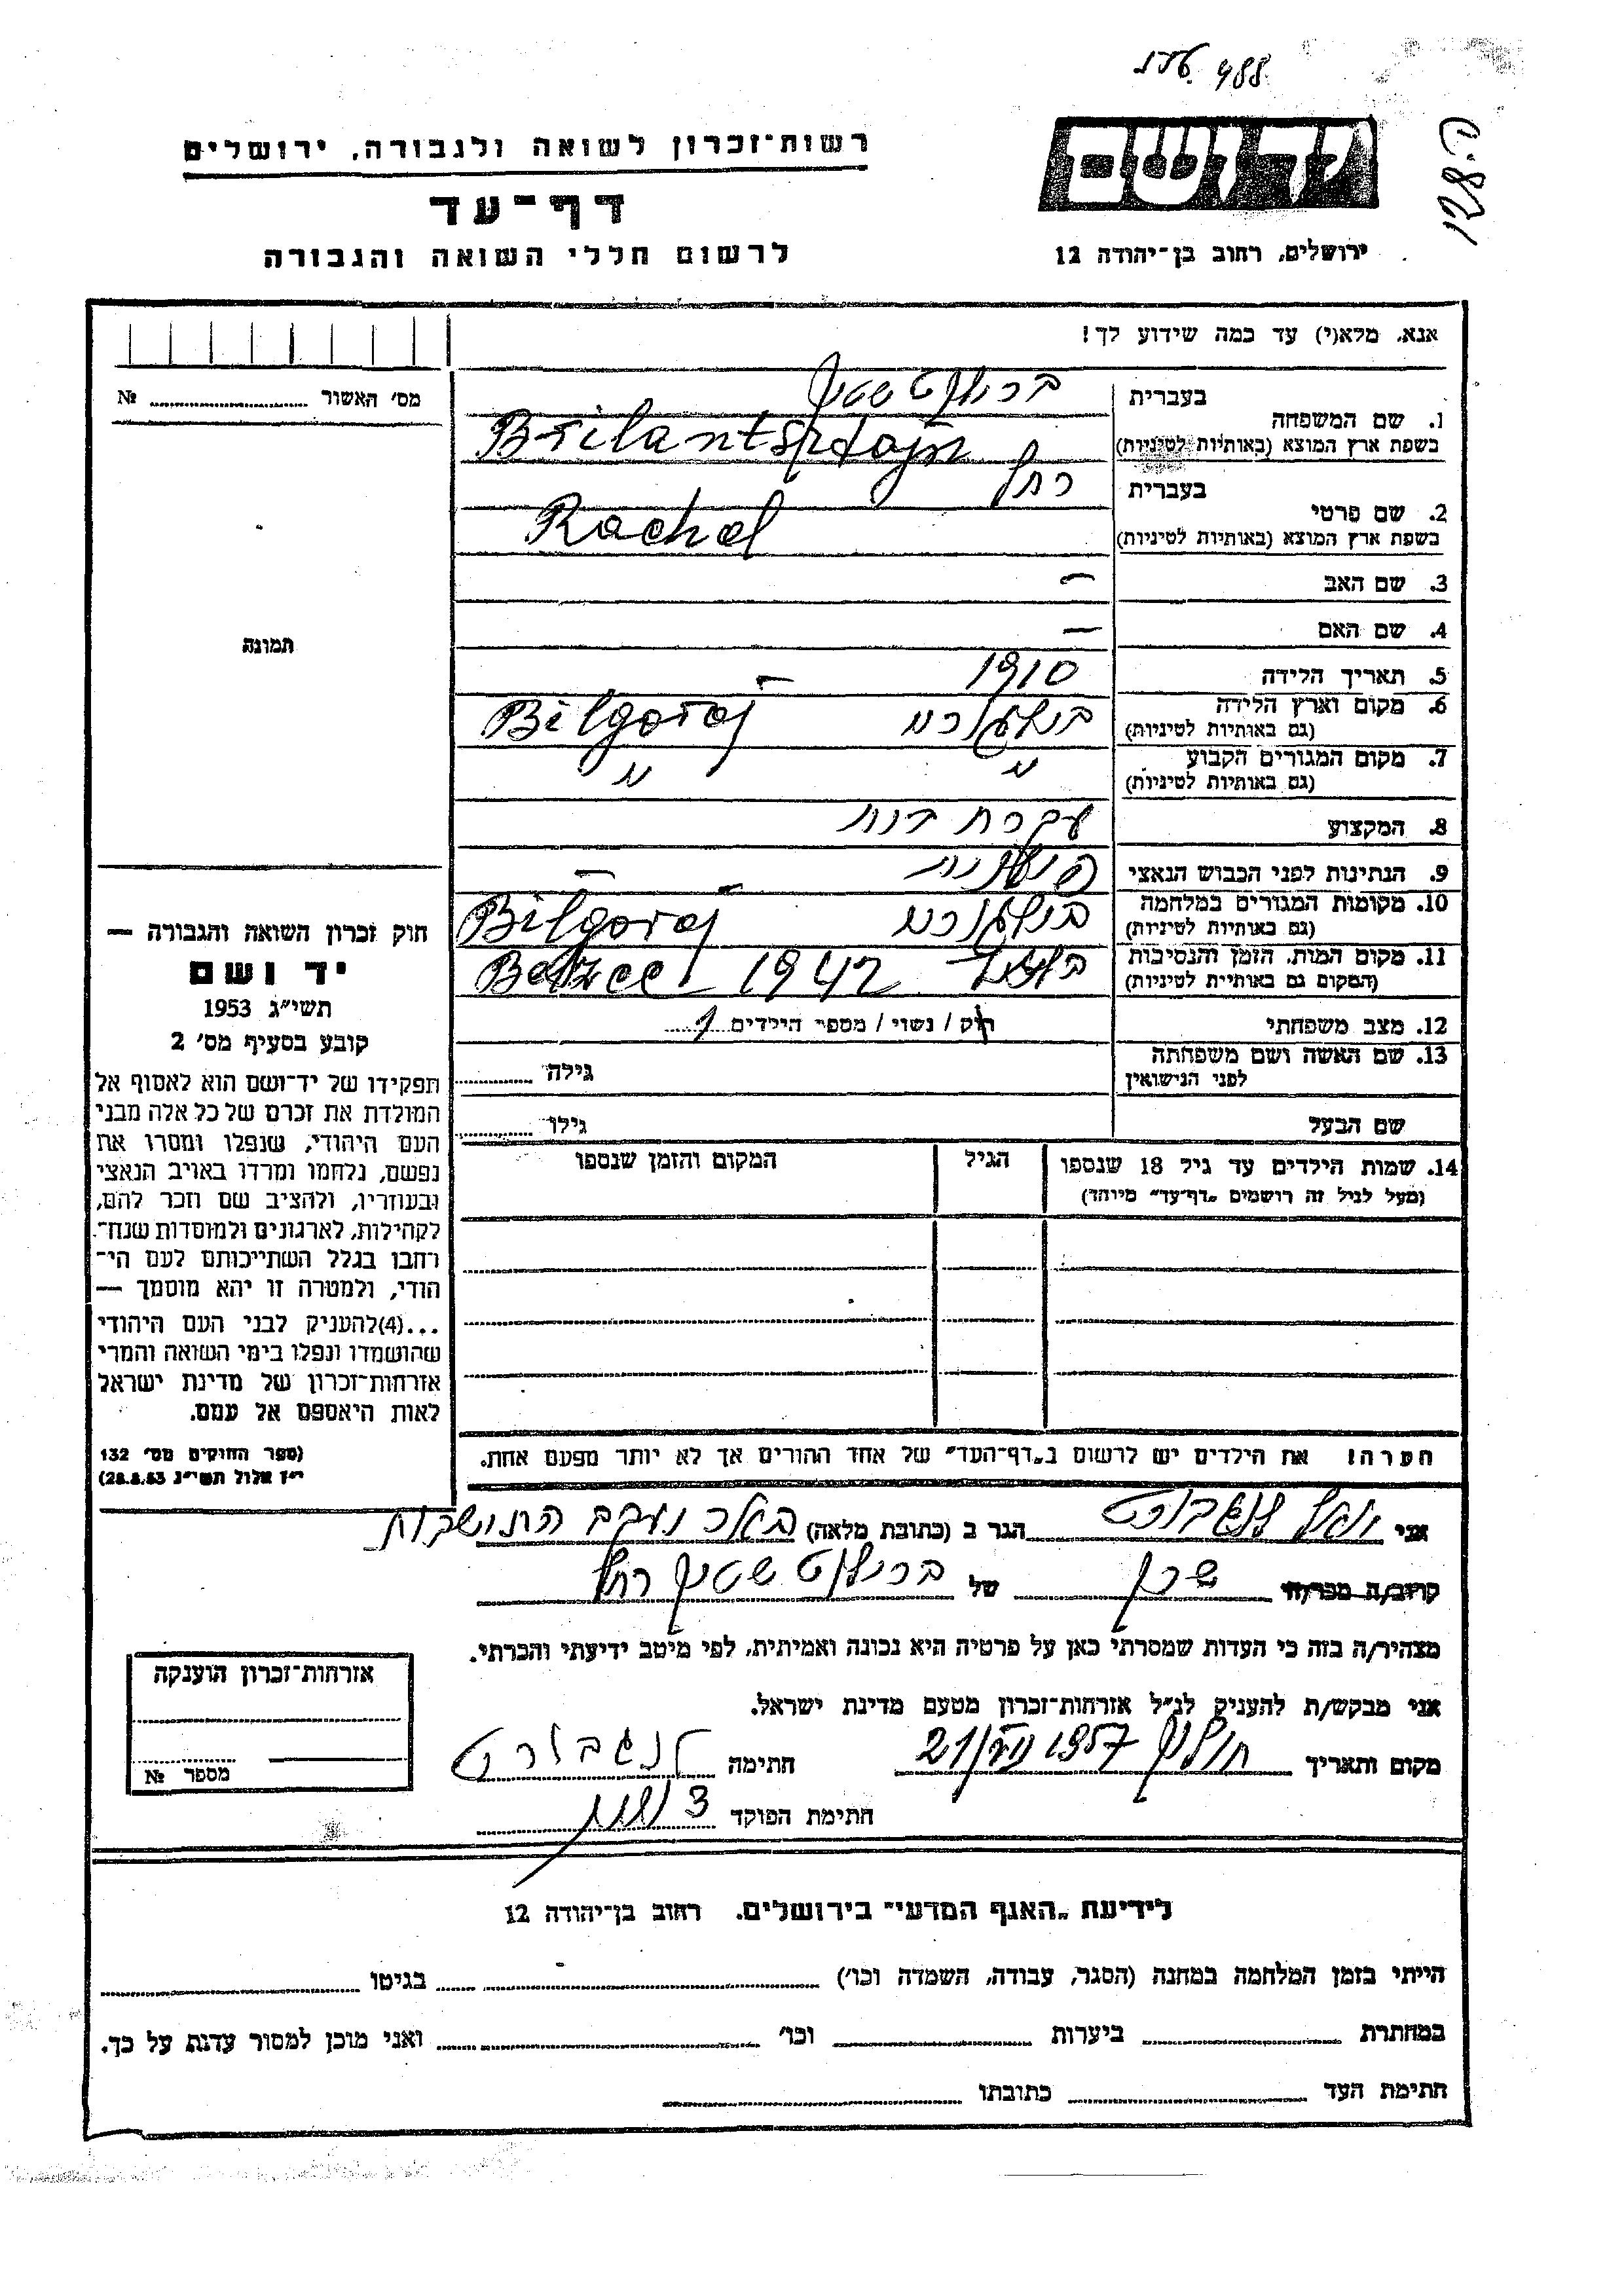 488
רשות־זכרון לשואה ולגבורה, ירושלים
יד ושם
דף־עד
לרשום חללי השואה והגבורה
ירושלים, רחוב בן־יהודה 12
אנא, מלא(י) עד כמה שידוע לך!
מס' האשור № 
1. שם המשפחה בעברית ברילנט שטיין
בשפת ארץ המוצא (באותיות לטיניות) Brilantsztajn
2. שם פרטי בעברית רחל
בשפת ארץ המוצא (באותיות לטיניות) Rachel
3. שם האב —
4. שם האם —
תמונה
5. תאריך הלידה 1910
6. מקום וארץ הלידה (גם באותיות לטיניות) בילגורי Bilgoraj
7. מקום המגורים הקבוע (גם באותיות לטיניות) " "
8. המקצוע עקרת בית
9. הנתינות לפני הכבוש הנאצי פולנית
10. מקומות המגורים במלחמה (גם באותיות לטיניות) בילגורי Bilgoraj
11. מקום המות, הזמן והנסיבות (המקום גם באותיית לטיניות) בלזץ Belzec 1942
12. מצב משפחתי רוק / נשוי / מספר הילדים 1
13. שם האשה ושם משפחתה לפני הנישואין גילה
שם הבעל גילו
14. שמות הילדים עד גיל 18 שנספו הגיל המקום והזמן שנספו
(מעל לגיל זה רושמים „דף־עד" מיוחד)
חוק זכרון השואה והגבורה —
יד ושם
תשי"ג 1953
קובע בסעיף מס' 2
תפקידו של יד־ושם הוא לאסוף אל
המולדת את זכרם של כל אלה מבני
העם היהודי, שנפלו ומסרו את
נפשם, נלחמו ומרדו באויב הנאצי
ובעוזריו, ולהציב שם וזכר להם,
לקהילות, לארגונים ולמוסדות שנח־
רחבו בגלל השתייכותם לעם הי־
הודי, ולמטרה זו יהא מוסמך —
...(4)להעניק לבני העם היהודי
שהושמדו ונפלו בימי השואה והמרי
אזרחות־זכרון של מדינת ישראל
לאות היאספם אל עמם.
(ספר החוקים מס' 132
י"ז אלול תשי"ג 28.8.53)
הערה! את הילדים יש לרשום ב„דף־העד" של אחד ההורים אך לא יותר מפעם אחת.
אני הגר ב (כתובת מלאה) באר יעקב
קרוב/ה מכר/ה שכן של ברילנט שטיין רחל
מצהיר/ה בזה כי העדות שמסרתי כאן על פרטיה היא נכונה ואמיתית, לפי מיטב ידיעתי והכרתי.
אני מבקש/ת להעניק לנ"ל אזרחות־זכרון מטעם מדינת ישראל.
מקום ותאריך חולון 21/VII 1957 חתימה
חתימת הפוקד
אזרחות־זכרון הוענקה
מספר №
לידיעת „האגף המדעי" בירושלים, רחוב בן־יהודה 12
הייתי בזמן המלחמה במחנה (הסגר, עבודה, השמדה וכו') בגיטו
במחתרת ביערות וכו' ואני מוכן למסור עדות על כך.
חתימת העד כתובתו